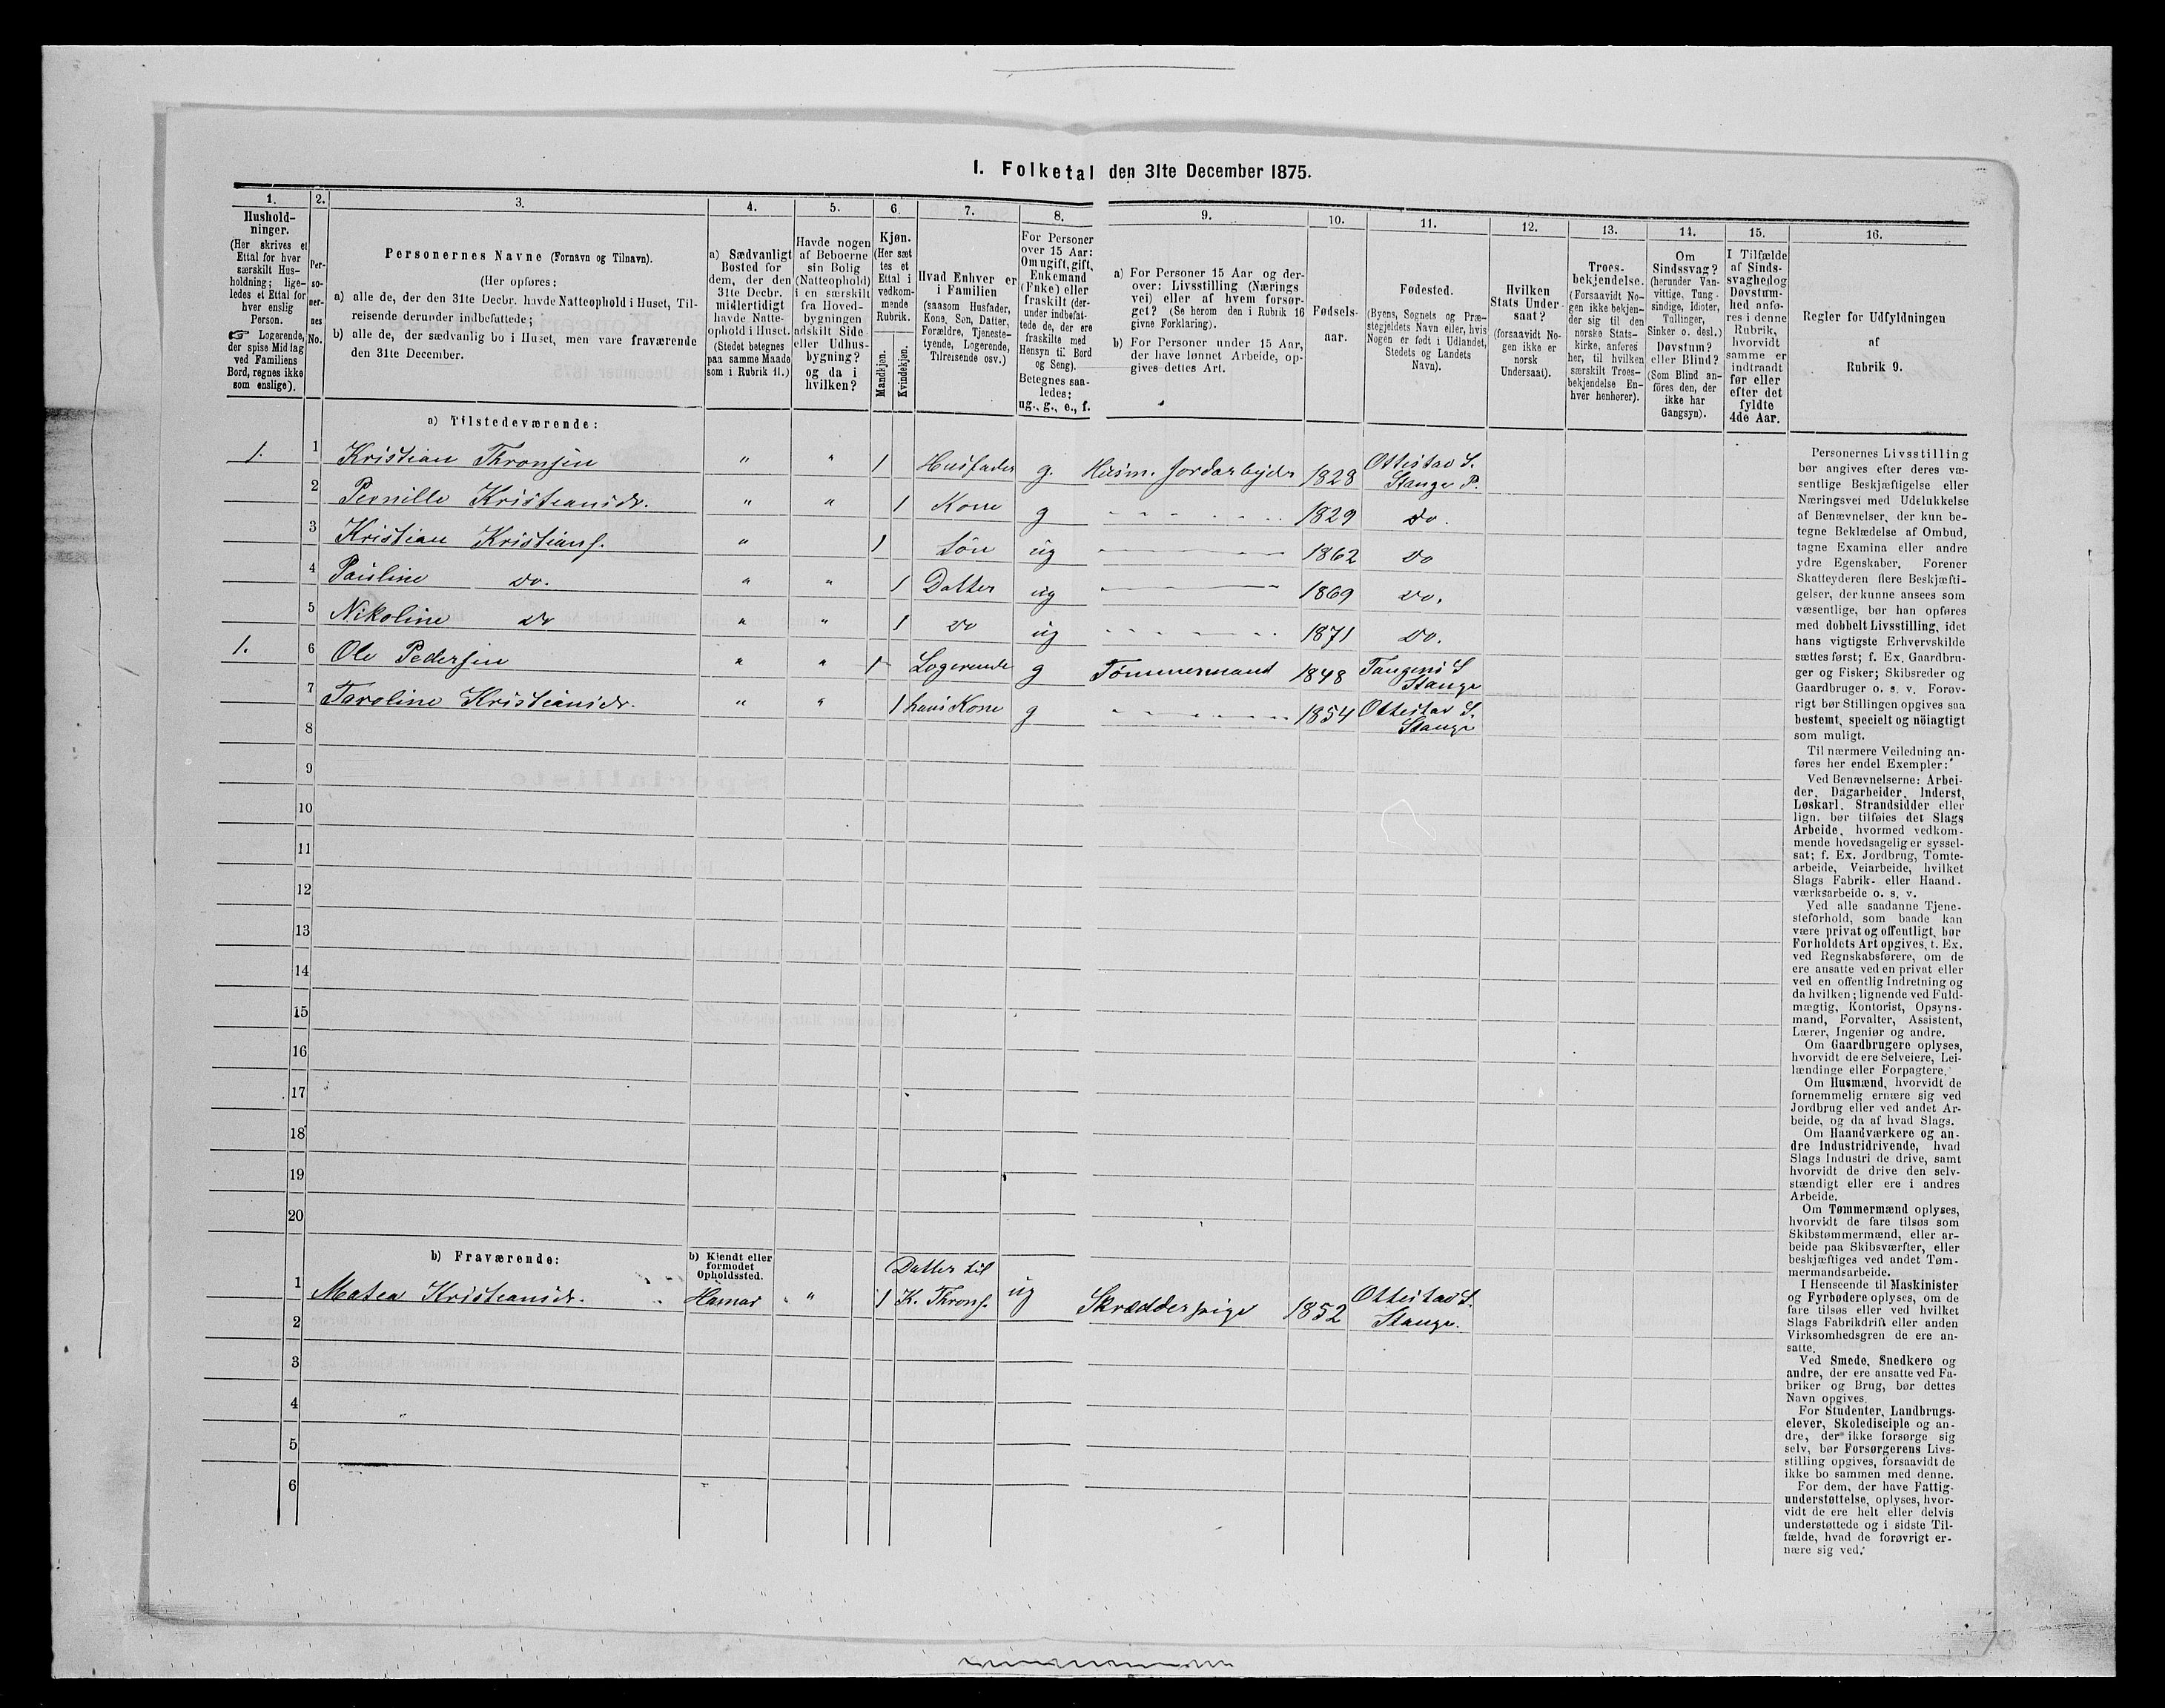 I. Folketal den 31te December 1875.
1. 2. 3. 4. 5. 6. 7. 8. 9. 10. 11. 12. 13. 14. 15. 16.
Hushold-
ninger.
(Her skrives et
Ettal for hver
særskilt Hus-
holdning; lige-
ledes et Ettal for
hver enslig
Person.
☞ Logerende,
der spise Middag
ved Familiens
Bord, regnes ikke
som enslige).
Per-
so-
ner-
nes
No.
Personernes Navne (Fornavn og Tilnavn).
(Her opføres:
a) alle de, der den 31te Decbr. havde Natteophold i Huset, Til-
reisende derunder indbefattede;
b) alle de, der sædvanlig bo i Huset, men vare fraværende
den 31te December.
a) Sædvanligt
Bosted for
dem, der den
31te Decbr.
midlertidigt
havde Natte-
ophold i Huset.
(Stedet betegnes
paa samme Maade
som i Rubrik 11.)
Havde nogen
af Beboerne
sin Bolig
(Natteophold)
i en særskilt
fra Hoved-
bygningen
adskilt Side-
eller Udhus-
bygning?
og da i
hvilken?
Kjøn.
(Her sæt
tes et
Ettal i
vedkom-
mende
Rubrik.
Mandkjøn.
Kvindekjøn.
Hvad Enhver er
i Familien
(saasom Husfader,
Kone, Søn, Datter,
Forældre, Tjeneste-
tyende, Logerende,
Tilreisende osv.)
For Personer
over 15 Aar:
Om ugift, gift,
Enkemand
(Enke) eller
fraskilt (der-
under indbefat-
tede de, der ere
fraskilte med
Hensyn til Bord
og Seng).
Betegnes saa-
ledes:
ug., g., e., f.
a) For Personer 15 Aar og der-
over: Livsstilling (Nærings
vei) eller af hvem forsør-
get? (Se herom den i Rubrik 16
givne Forklaring).
b) For Personer under 15 Aar,
der have lønnet Arbeide, op-
gives dettes Art.
Fødsels-
aar.
Fødested.
(Byens, Sognets og Præ-
stegjeldets Navn eller, hvis
Nogen er født i Udlandet,
Stedets og Landets
Navn).
Hvilken
Stats Under-
saat?
(forsaavidt No-
gen ikke er
norsk
Undersaat).
Troes-
bekjendelse.
(Forsaavidt No-
gen ikke bekjen-
der sig til den
norske Stats-
kirke, anføres
her, til hvilken
særskilt Troes-
bekjendelse En-
hver henhører).
Om
Sindssvag?
(herunder Van-
vittige, Tung-
sindige, Idioter,
Tullinger,
Sinker o. desl.)
Døvstum?
eller Blind?
(Som Blind an-
føres den, der
ikke har
Gangsyn).
I Tilfælde
af Sinds-
svaghed og
Døvstum-
hed anfø-
res i denne
Rubrik,
hvorvidt
samme er
indtraadt
før eller
efter det
fyldte
4de Aar.
Regler for Udfyldningen
af
Rubrik 9.
a) Tilstedeværende:
1. 1 Kristian Thronsen " " 1 Husfader g. Husm. Jordarbejder 1828 Ottestad S. Stange P.
2 Pernille Kristiansdr. " " 1 Kone g 1829 do.
3 Kristian Kristians. " 1 Søn ug 1862 do
4 Pauline do. " " 1 Datter ug 1869 do.
5 Nikoline do " " 1 do ug 1871 do.
1. 6 Ole Pedersen " " 1 Logerende g Tømmermand 1848 Tangens S Stange
7 Karoline Kristiansdr. " " 1 hans Kone g 1854 Ottestad S. Stange
8
9
10
11
12
13
14
15
16
17
18
19
20
b) Fraværende:
b) Kjendt eller
formodet
Opholdssted.
1 Matea Kristiansdr. Hamar " 1 Datter til K. Throns. ug Skrædderpige 1852 Ottestad S. Stange.
2
3
4
5
6
Personernes Livsstilling
bør angives efter deres væ-
sentlige Beskjæftigelse eller
Næringsvei med Udelukkelse
af Benævnelser, der kun be-
tegne Beklædelse af Ombud,
tagne Examina eller andre
ydre Egenskaber. Forener
Skatteyderen flere Beskjæfti-
gelser, der kunne ansees som
væsentlige, bør han opføres
med dobbelt Livsstilling, idet
hans vigtigste Erhvervskilde
sættes først; f. Ex. Gaardbru-
ger og Fisker; Skibsreder og
Gaardbruger o. s. v. Forøv-
rigt bør Stillingen opgives saa
bestemt, specielt og nöiagtigt
som muligt.
Til nærmere Veiledning an-
føres her endel Exempler:
Ved Benævnelserne: Arbei-
der, Dagarbeider, Inderst,
Løskarl, Strandsidder eller
lign. bør tilføies det Slags
Arbeide, hvormed vedkom-
mende hovedsagelig er syssel-
sat; f. Ex. Jordbrug, Tomte-
arbeide, Veiarbeide, hvilket
Slags Fabrik- eller Haand-
værksarbeide o. s. v.
Ved alle saadanne Tjene-
steforhold, som baade kan
være privat og offentligt, bør
Forholdets Art opgives, t. Ex.
ved Regnskabsførere, om de
ere ansatte ved en privat eller
ved en offentlig Indretning og
da hvilken; lignende ved Fuld-
mægtig, Kontorist, Opsyns-
mand, Forvalter, Assistent,
Lærer, Ingeniør og andre.
Om Gaardbrugere oplyses,
hvorvidt de ere Selveiere, Lei-
lændinge eller Forpagtere.
Om Husmænd, hvorvidt de
fornemmelig ernære sig ved
Jordbrug eller ved andet Ar-
beide, og da af hvad Slags.
Om Haandværkere og an-
dre Industridrivende, hvad
Slags Industri de drive, samt
hvorvidt de drive den selv-
stændigt eller ere i andres
Arbeide.
Om Tømmermænd oplyses,
hvorvidt de fare tilsøs som
Skibstømmermænd, eller ar-
beide paa Skibsværfter, eller
beskjæftiges ved andet Tøm-
mermandsarbeide.
I Henseende til Maskinister
og Fyrbødere oplyses, om de
fare tilsøs eller ved hvilket
Slags Fabrikdrift eller anden
Virksomhedsgren de ere an-
satte.
Ved Smede, Snedkere og
andre, der ere ansatte ved Fa-
briker og Brug, bør dettes
Navn opgives.
For Studenter, Landbrugs-
elever, Skoledisciple og an-
dre, der ikke forsørge sig
selv, bør Forsørgerens Livs-
stilling opgives, forsaavidt de
ikke bo sammen med denne.
For dem, der have Fattig-
understøttelse, oplyses, hvor-
vidt de ere helt eller delvis
understøttede og i sidste Til-
fælde, hvad de forøvrigt er-
nære sig ved.